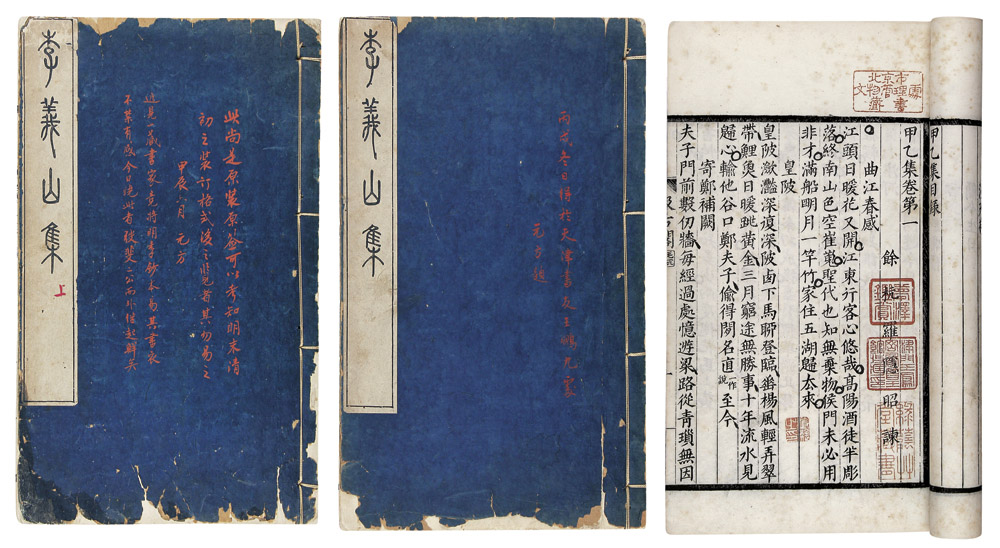 李義山集
上
此尚是原裝原簽可以考知明末清
初之裝訂格式後之得者其勿易之
甲辰六月 元方
近見一藏書家竟將明季鈔本易其書衣
不禁有感今日
李義山集
丙戌冬日得於天津書友王鵬九處
元方題
甲乙集目錄
甲乙集卷第一
餘杭羅隱昭諫
曲江春感
江頭日暖花又開江東行客心悠哉高陽酒徒半彫
落終南山色空崔嵬聖代也知無棄物侯門未必用
非才滿船明月一竿竹家住五湖歸去來
皇陂
皇陂瀲灎深復深陂西下馬聊登臨垂楊風輕弄翠
帶鯉魚日暖跳黃金三月窮途無勝事十年流水見
歸心輸他谷口鄭夫子偷得閒名直一作說至今
寄鄭補闕
夫子門前數仞牆每經過處憶遊梁路從青瑣無因